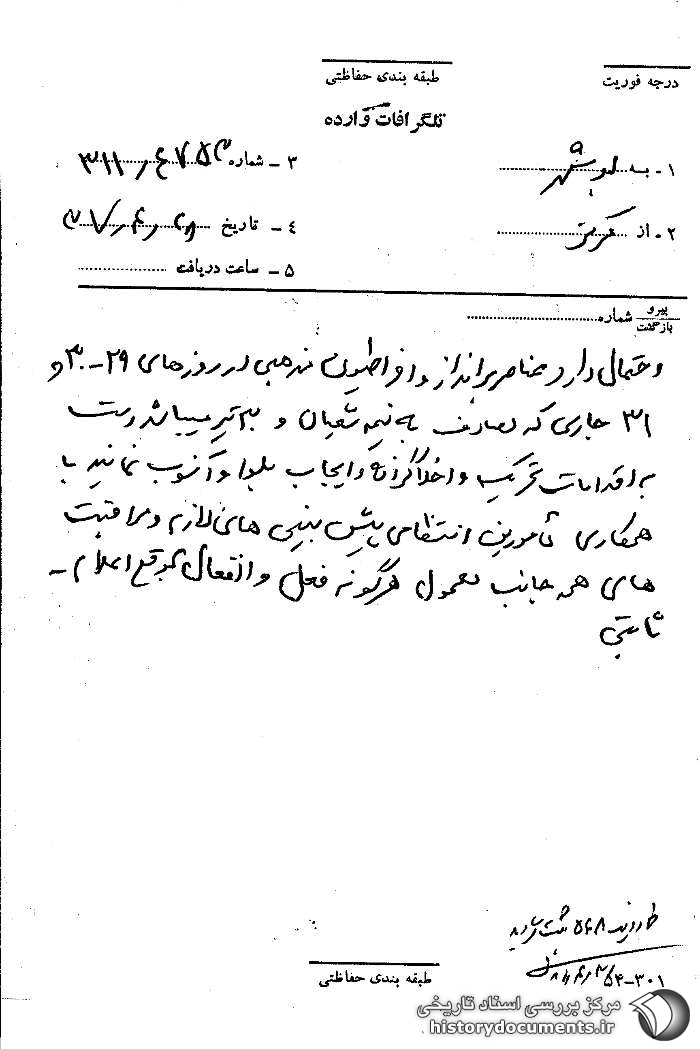 درجه فوریت
طبقه بندی حفاظتی
تلگرافات وارده
۱ - به بوشهر
۳ - شماره ۳۱۱
۲ - از مرکز
۴ - تاریخ ۳۷
۵ - ساعت دریافت
پیرو
بازگشت
شماره
احتمال دارد عناصر برانداز و افراطیون مذهبی در روزهای ۲۹-۳۰ و
۳۱ جاری که مصادف به نیمه شعبان و ۳۰ تیر میباشد دست
به اقدامات تحریک و اخلالگرانه و ایجاب بلوا و آشوب نمایند با
همکاری مأمورین انتظامی پیش بینی های لازم و مراقبت
های همه جانبه معمول هرگونه فعل و انفعال بموقع اعلام -
ثابتی
۵۶۸ ثبت
طبقه بندی حفاظتی
۳۰۱-۵۴
مرکز بررسی اسناد تاریخی
historydocuments.ir